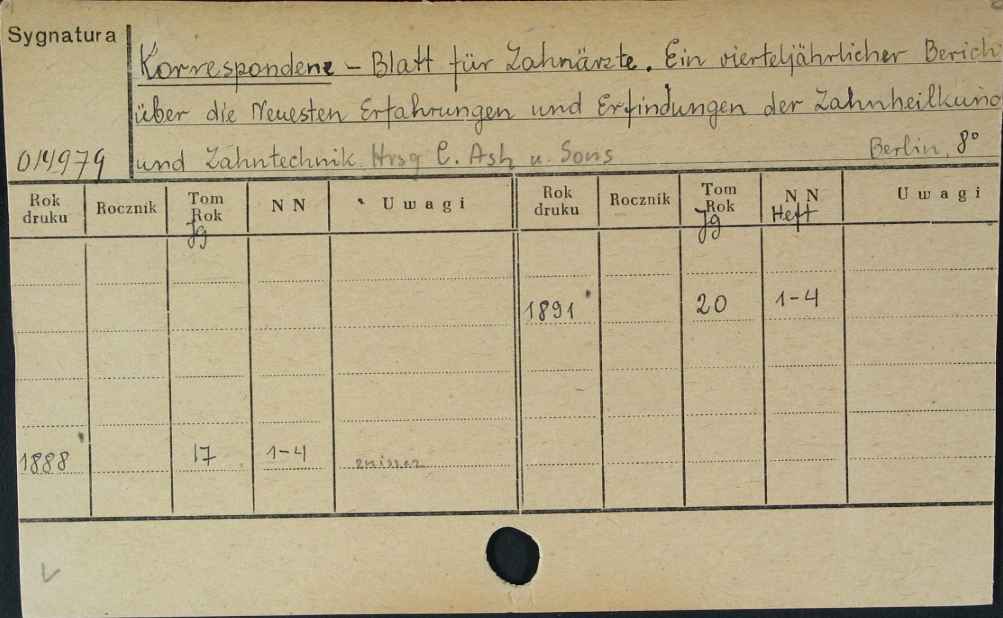 Sygnatura
Korrespondenz - Blatt für Zahnärzte. Ein vierteljährlicher Berich
über die Neuesten Erfahrungen und Erfindungen der Zahnheilkund
014979 und Zahntechnik. Hrsg C. Ash u. Sons Berlin, 8°
Rok druku Rocznik Tom Rok Jg NN Uwagi Rok druku Rocznik Tom Rok Jg NN Heft Uwagi
1891 20 1-4
1888 17 1-4